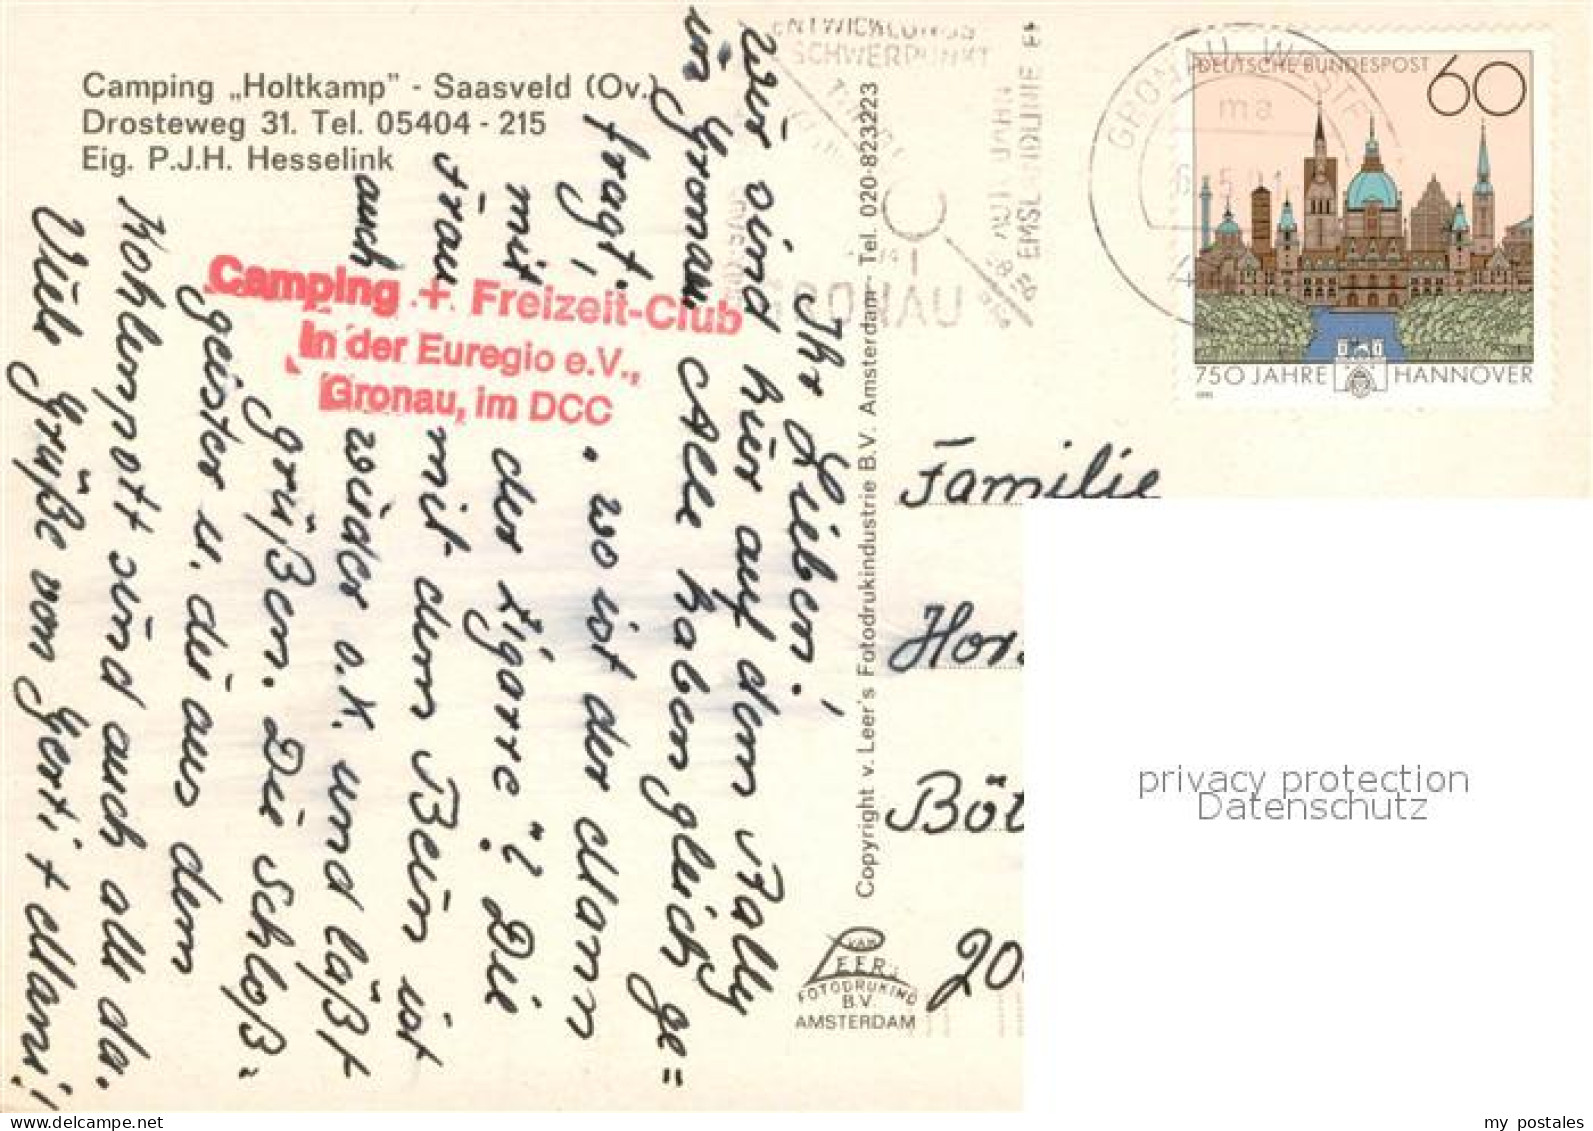 Camping „Holtkamp” - Saasveld (Ov.)
Drosteweg 31. Tel. 05404 - 215
Eig. P.J.H. Hesselink
Ihr Lieben!
Wir sind hier auf dem Rally
in Gronau. Alle haben gleich ge=
fragt, „wo ist der Mann
mit der Zigarre"? Die
Frau mit dem Bein ist
auch wieder o.K. und läßt
grüßen. Die Schloß=
geister u. die aus dem
Kohlenpott sind auch alle da.
Viele Grüße von Gerti + Mani!
Camping + Freizeit-Club
in der Euregio e.V.,
Gronau, im DCC
Copyright v. Leer's Fotodrukindustrie B.V. Amsterdam - Tel. 020-823223
VAN
LEER'S
FOTODRUKIND
B.V.
AMSTERDAM
ENTWICKLUNGS
SCHWERPUNKT
GRONAU
GRONAU, WESTF
ma
DEUTSCHE BUNDESPOST
60
750 JAHRE HANNOVER
1991
Familie
Hor
Böt
20
privacy protection
Datenschutz
my postales